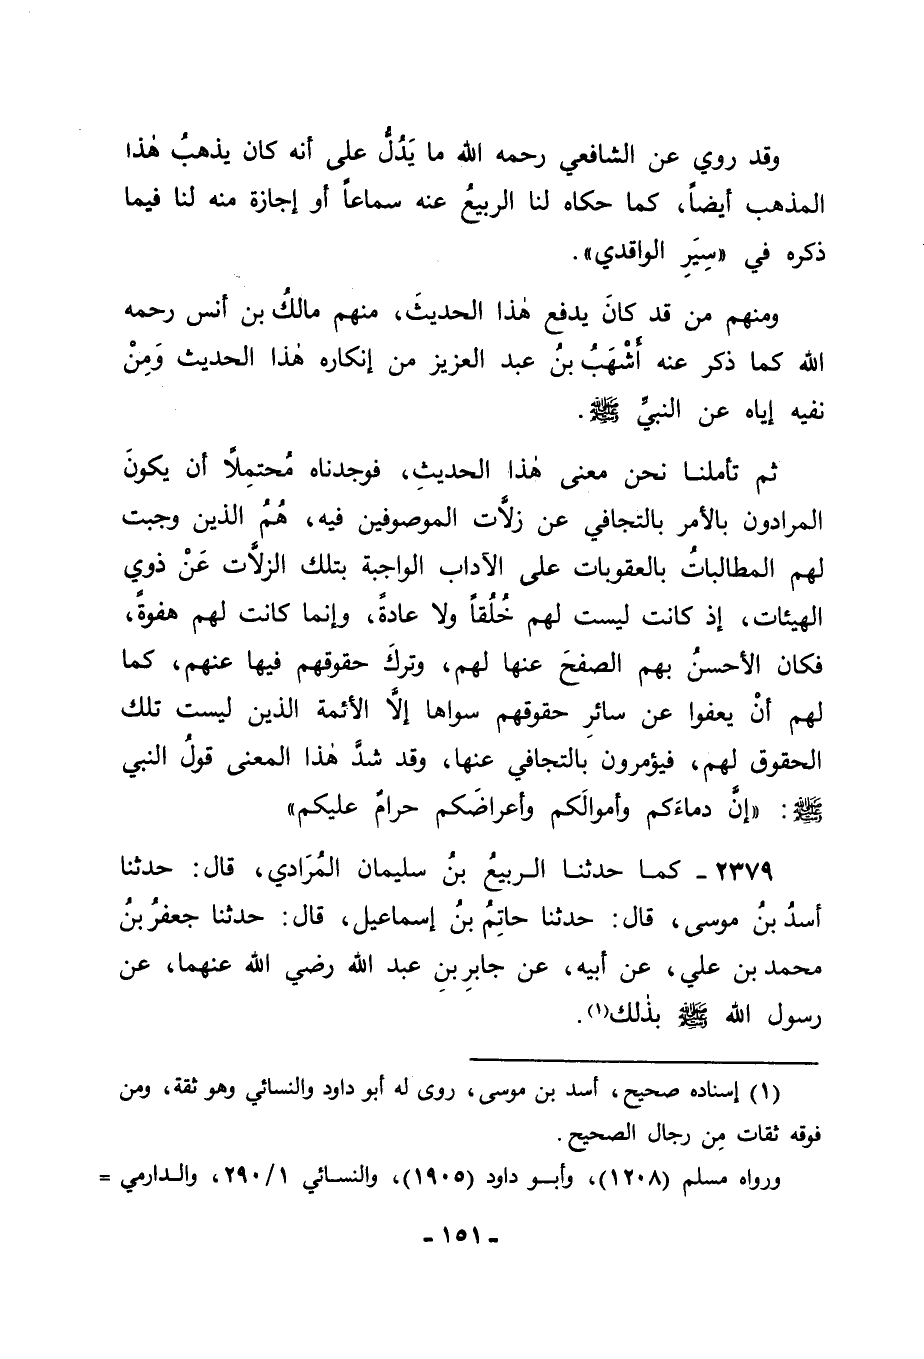 وقد روي عن الشافعي رحمه الله ما يَدُلُّ على أنه كان يذهبُ هٰذا
المذهب أيضاً، كما حكاه لنا الربيعُ عنه سماعاً أو إجازة منه لنا فيما
ذكره في «سِيَرِ الواقدي».
ومنهم من قد كانَ يدفع هٰذا الحديثَ، منهم مالكُ بن أنس رحمه
الله كما ذكر عنه أَشْهَبُ بنُ عبد العزيز من إنكاره هٰذا الحديث وَمِنْ
نفيه إياه عن النبيِّ ﷺ.
ثم تأملنا نحن معنى هٰذا الحديثِ، فوجدناه مُحتمِلًا أن يكونَ
المرادون بالأمر بالتجافي عن زلَّات الموصوفين فيه، هُمُ الذين وجبت
لهم المطالباتُ بالعقوبات على الآداب الواجبة بتلك الزلَّات عَنْ ذوي
الهيئات، إذ كانت ليست لهم خُلُقاً ولا عادةً، وإنما كانت لهم هفوةً،
فكان الأحسنُ بهم الصفحَ عنها لهم، وتركَ حقوقهم فيها عنهم، كما
لهم أنْ يعفوا عن سائرِ حقوقهم سواها إلَّا الأئمة الذين ليست تلك
الحقوق لهم، فيؤمرون بالتجافي عنها، وقد شدَّ هٰذا المعنى قولُ النبي
ﷺ: «إنَّ دماءَكم وأموالَكم وأعراضَكم حرامٌ عليكم»
٢٣٧٩ - كما حدثنا الربيعُ بنُ سليمان المُرَادي، قال: حدثنا
أسدُ بنُ موسى، قال: حدثنا حاتِمُ بنُ إسماعيل، قال: حدثنا جعفرُ بنُ
محمد بن علي، عن أبيه، عن جابرِ بنِ عبد الله رضي الله عنهما، عن
رسول الله ﷺ بذٰلك(١).
(١) إسناده صحيح، أسد بن موسى، روى له أبو داود والنسائي وهو ثقة، ومن
فوقه ثقات مِن رجال الصحيح.
ورواه مسلم (١٢٠٨)، وأبو داود (١٩٠٥)، والنسائي ٢٩٠/١، والدارمي =
- ١٥١ -